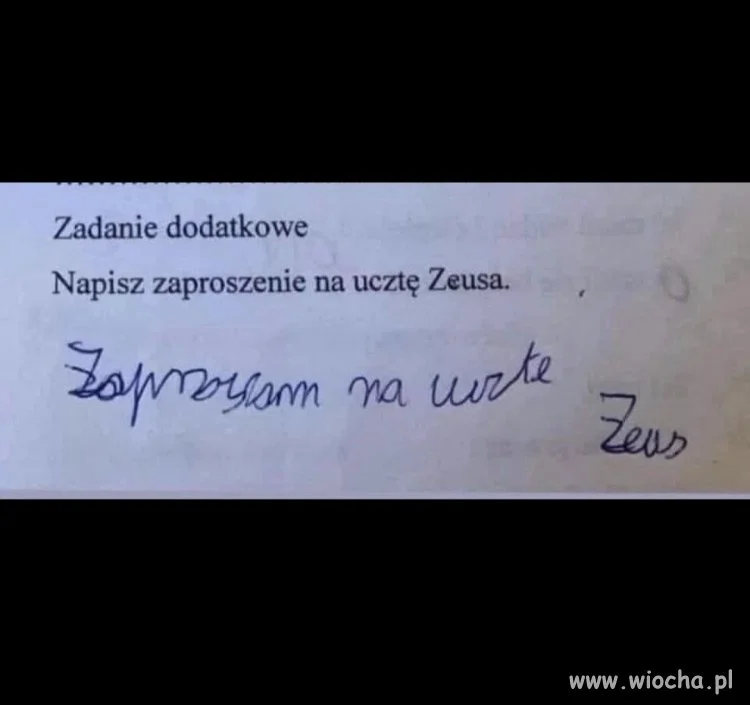 Zadanie dodatkowe
Napisz zaproszenie na ucztę Zeusa.
Zapraszam na uczte
Zeus
www.wiocha.pl